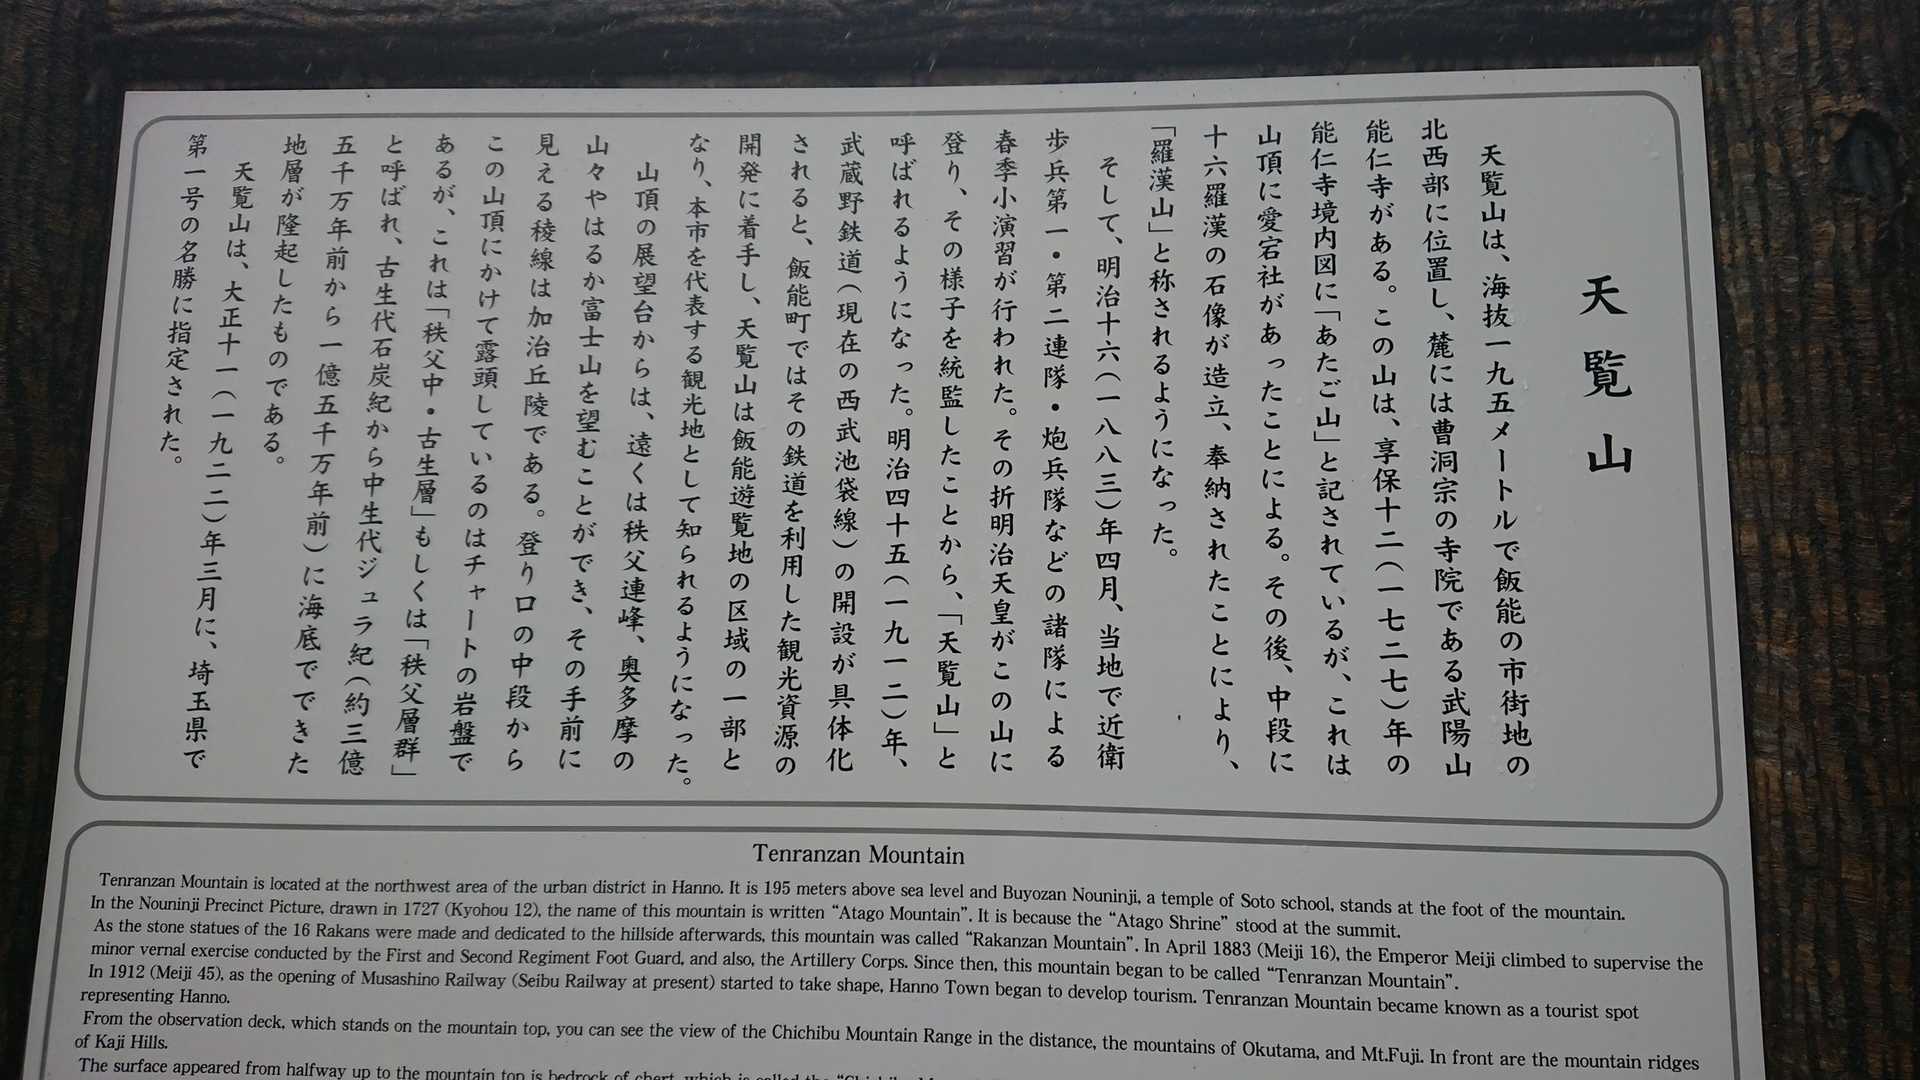 天覧山
天覧山は、海抜一九五メートルで飯能の市街地の
北西部に位置し、麓には曹洞宗の寺院である武陽山
能仁寺がある。この山は、享保十二（一七二七）年の
能仁寺境内図に「あたご山」と記されているが、これは
山頂に愛宕社があったことによる。その後、中段に
十六羅漢の石像が造立、奉納されたことにより、
「羅漢山」と称されるようになった。
そして、明治十六（一八八三）年四月、当地で近衛
歩兵第一・第二連隊・炮兵隊などの諸隊による
春季小演習が行われた。その折明治天皇がこの山に
登り、その様子を統監したことから、「天覧山」と
呼ばれるようになった。明治四十五（一九一二）年、
武蔵野鉄道（現在の西武池袋線）の開設が具体化
されると、飯能町ではその鉄道を利用した観光資源の
開発に着手し、天覧山は飯能遊覧地の区域の一部と
なり、本市を代表する観光地として知られるようになった。
山頂の展望台からは、遠くは秩父連峰、奥多摩の
山々やはるか富士山を望むことができ、その手前に
見える稜線は加治丘陵である。登り口の中段から
この山頂にかけて露頭しているのはチャートの岩盤で
あるが、これは「秩父中・古生層」もしくは「秩父層群」
と呼ばれ、古生代石炭紀から中生代ジュラ紀（約三億
五千万年前から一億五千万年前）に海底でできた
地層が隆起したものである。
天覧山は、大正十一（一九二二）年三月に、埼玉県で
第一号の名勝に指定された。
Tenranzan Mountain
Tenranzan Mountain is located at the northwest area of the urban district in Hanno. It is 195 meters above sea level and Buyozan Nouninji, a temple of Soto school, stands at the foot of the mountain.
In the Nouninji Precinct Picture, drawn in 1727 (Kyohou 12), the name of this mountain is written “Atago Mountain”. It is because the “Atago Shrine” stood at the summit.
As the stone statues of the 16 Rakans were made and dedicated to the hillside afterwards, this mountain was called “Rakanzan Mountain”. In April 1883 (Meiji 16), the Emperor Meiji climbed to supervise the
minor vernal exercise conducted by the First and Second Regiment Foot Guard, and also, the Artillery Corps. Since then, this mountain began to be called “Tenranzan Mountain”.
In 1912 (Meiji 45), as the opening of Musashino Railway (Seibu Railway at present) started to take shape, Hanno Town began to develop tourism. Tenranzan Mountain became known as a tourist spot
representing Hanno.
From the observation deck, which stands on the mountain top, you can see the view of the Chichibu Mountain Range in the distance, the mountains of Okutama, and Mt.Fuji. In front are the mountain ridges
of Kaji Hills.
The surface appeared from halfway up to the mountain top is bedrock of chert, which is called the